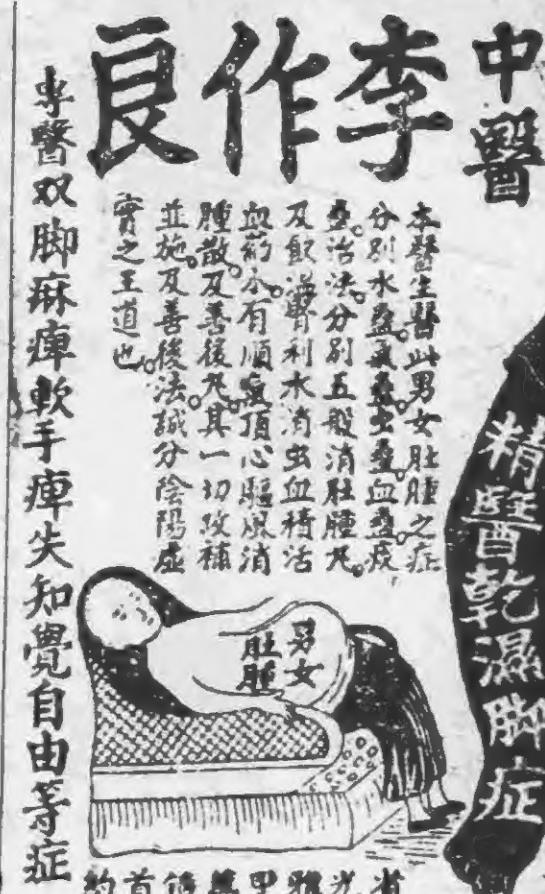 中醫
李作良
精醫乾濕脚症
本醫生醫此男女肚腫之症
分別水蠱氣蠱虫蠱血蠱痰
蠱治法分別五般消肚腫丸
及飲滋腎利水消虫血積活
血葯水有順氣頂心驅風消
腫散及善後丸其一切攻補
並施及善後法誠分陰陽虛
實之王道也
專醫双脚麻痺軟手痺失知覺自由等症
男女
肚腫